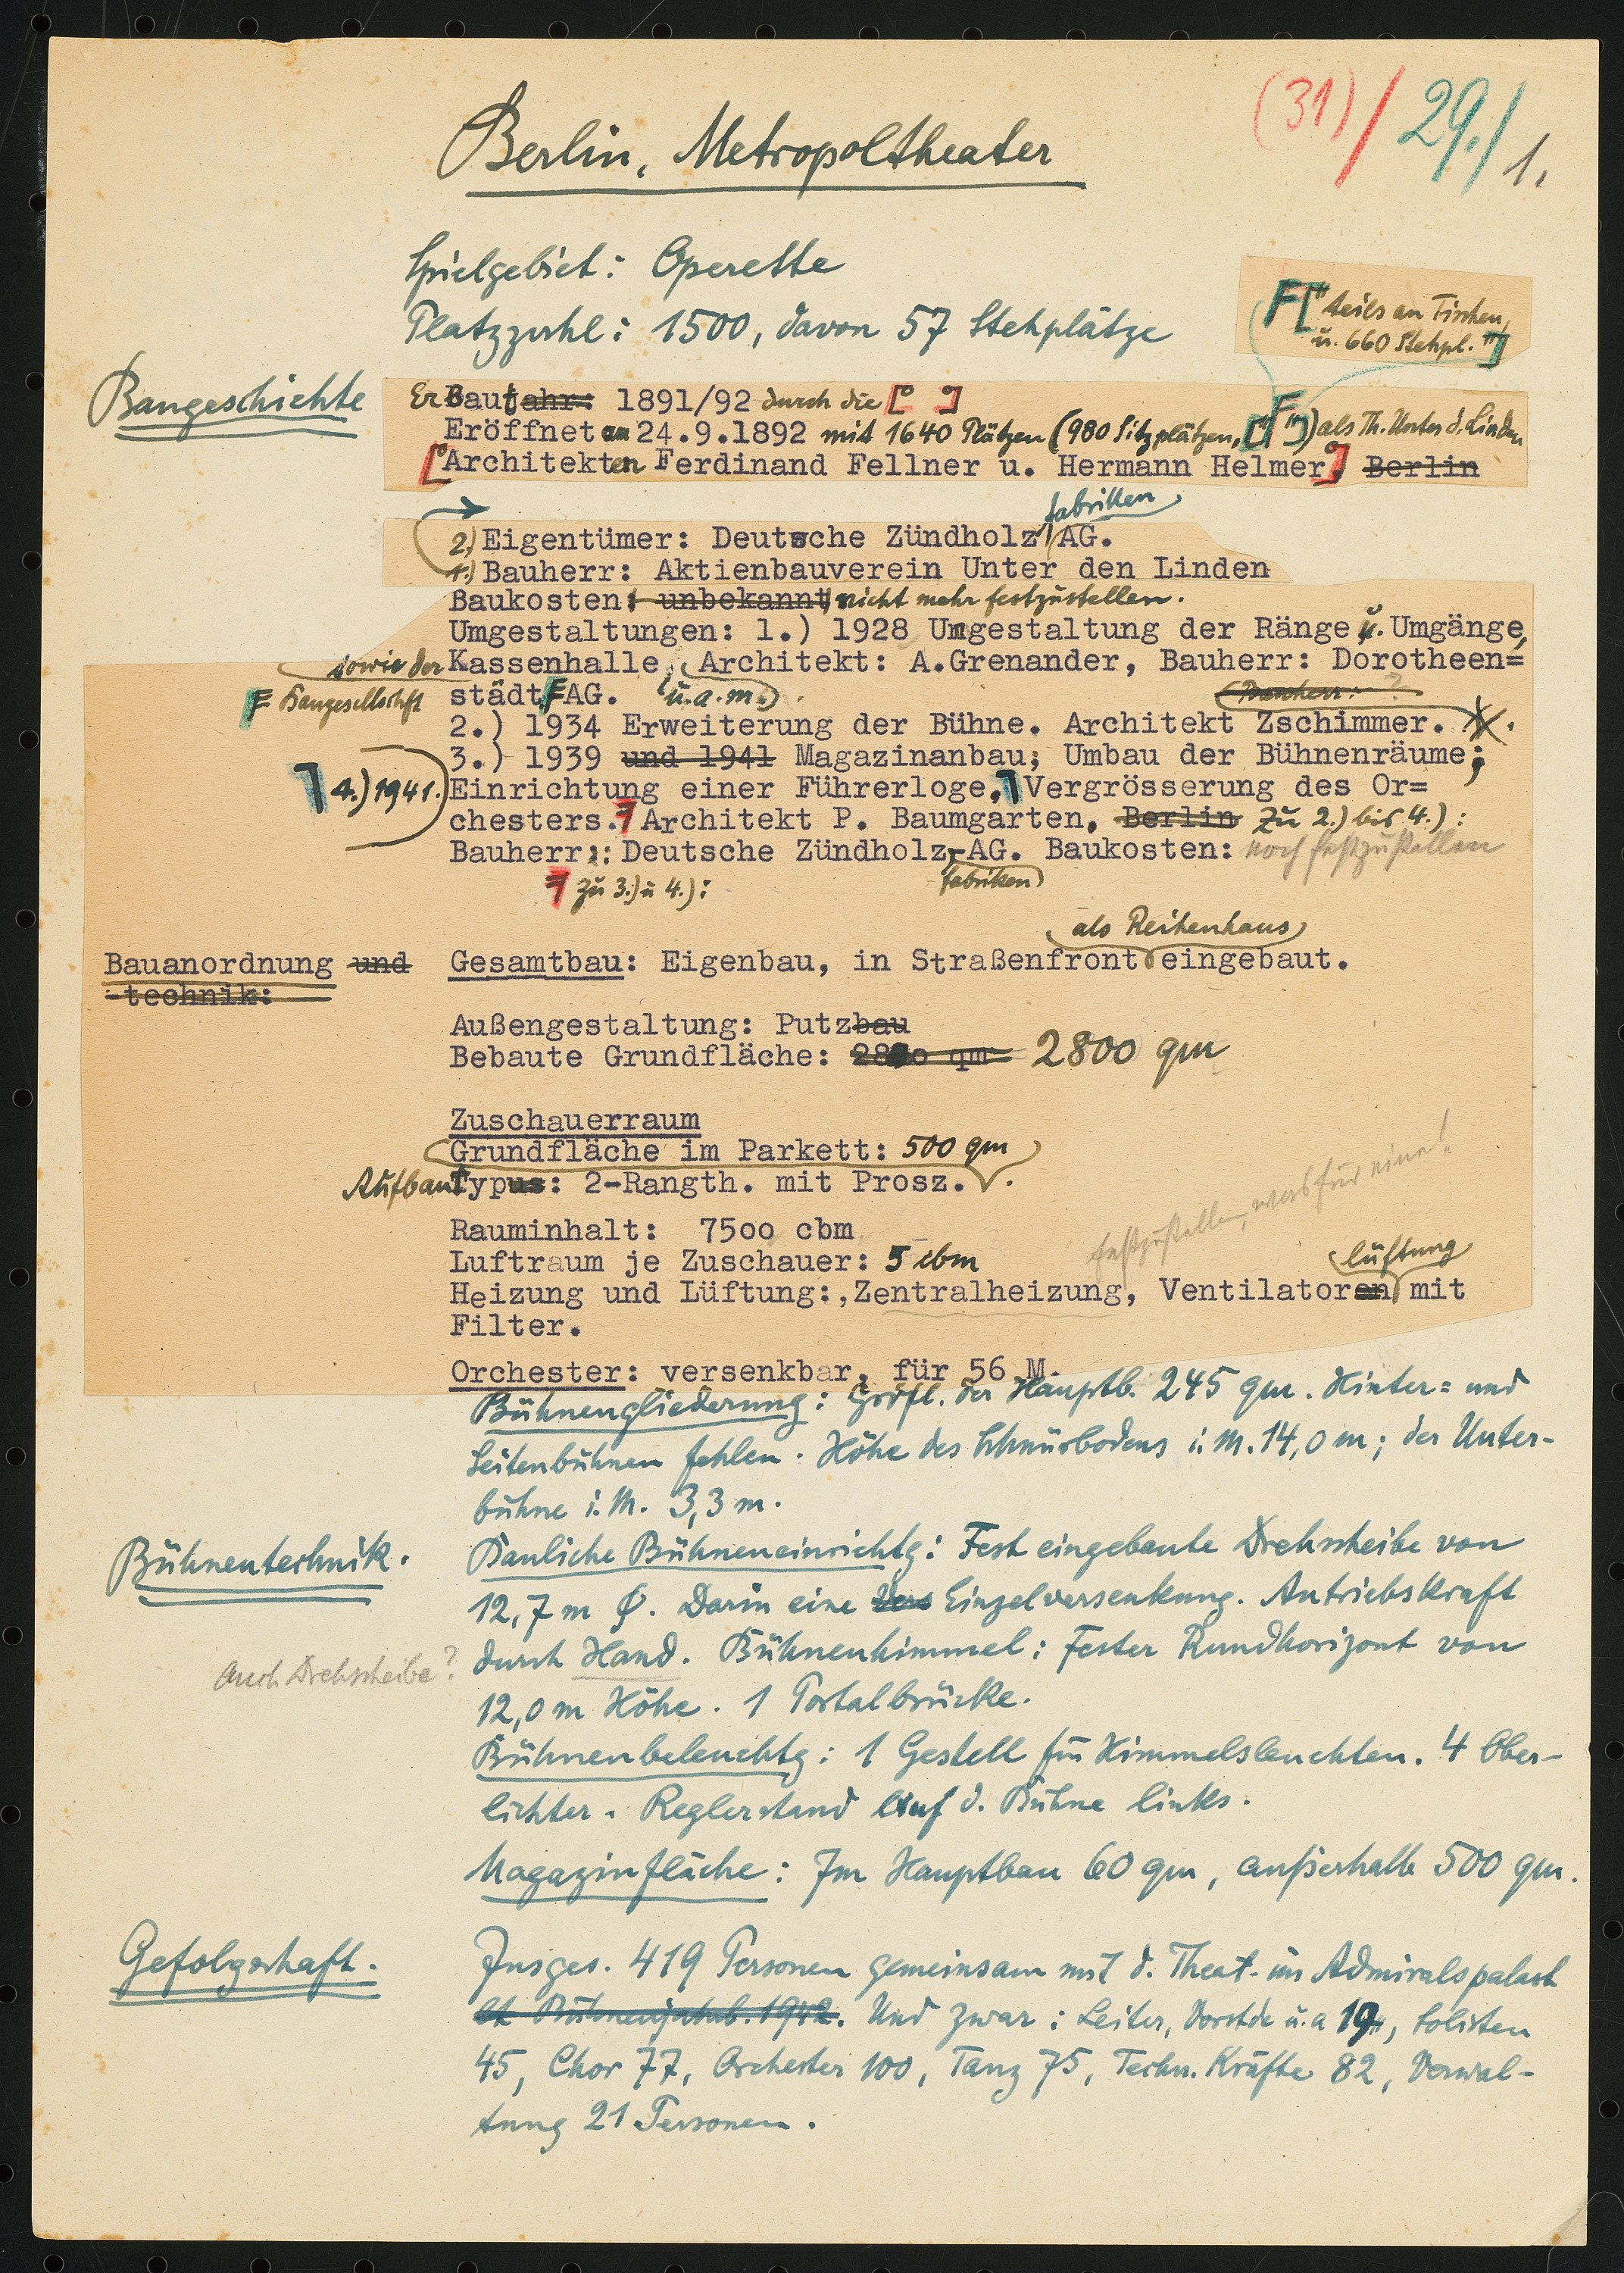 (31) / 29. / 1.
Berlin, Metropoltheater
Spielgebiet: Operette
Platzzahl: 1500, davon 57 Stehplätze
F[" teils an Tischen,
u. 660 Stehpl."]
Baugeschichte
Erbaut Baujahr: 1891/92 durch die [° °]
Eröffnet am 24.9.1892 mit 1640 Plätzen (980 Sitzplätzen, [F "]) als Th. Unter d. Linden
[°Architekten Ferdinand Fellner u. Hermann Helmer°] Berlin
fabriken
2.) Eigentümer: Deutsche Zündholz AG.
1.) Bauherr: Aktienbauverein Unter den Linden
Baukosten: unbekannt, nicht mehr festzustellen.
Umgestaltungen: 1.) 1928 Umgestaltung der Ränge u. Umgänge,
sowie der Kassenhalle, Architekt: A.Grenander, Bauherr: Dorotheen=
F Baugesellschft städt.F AG. (u.a.m.) Bauherr: ?
2.) 1934 Erweiterung der Bühne. Architekt Zschimmer.
3.) 1939 und 1941 Magazinanbau; Umbau der Bühnenräume;
4.) 1941. Einrichtung einer Führerloge, Vergrösserung des Or=
chesters. Architekt P. Baumgarten, Berlin Zu 2.) bis 4.) :
Bauherr: Deutsche Zündholz-AG. Baukosten: noch festzustellen
zu 3.) u 4.) : fabriken
als Reihenhaus
Bauanordnung und Gesamtbau: Eigenbau, in Straßenfront eingebaut.
-technik:
Außengestaltung: Putzbau
Bebaute Grundfläche: 2800 qm 2800 qm
Zuschauerraum
Grundfläche im Parkett: 500 qm
Aufbau Typus: 2-Rangth. mit Prosz.
Rauminhalt: 7500 cbm
Luftraum je Zuschauer: 5 cbm
festzustellen, was für eine!
lüftung
Heizung und Lüftung:,Zentralheizung, Ventilatoren mit
Filter.
Orchester: versenkbar, für 56 M.
Bühnengliederung: Grdfl. der Hauptb. 245 qm. Hinter= und
Seitenbühnen fehlen. Höhe des Schnürbodens i. M. 14,0 m; der Unter-
bühne i. M. 3,3 m.
Bühnentechnik.
Bauliche Bühneneinrichtg: Fest eingebaute Drehscheibe von
12,7 m Ø. Darin eine Vers Einzelversenkung. Antriebskraft
durch Hand. Bühnenhimmel: Fester Rundhorizont von
auch Drehscheibe?
12,0 m Höhe. 1 Portalbrücke.
Bühnenbeleuchtg: 1 Gestell für Himmelsleuchten. 4 Ober-
lichter. Reglerstand auf d. Bühne links.
Magazinfläche: Im Hauptbau 60 qm, außerhalb 500 qm.
Gefolgschaft.
Insges. 419 Personen gemeinsam mit d. Theat. im Admiralspalast
lt Bühnenjahrb. 1942. Und zwar: Leiter, Vorstde u. a 19, Solisten
45, Chor 77, Orchester 100, Tanz 75, Techn. Kräfte 82, Verwal-
tung 21 Personen.